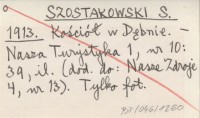 SZOSTAKOWSKI S.
1913. Kościół w Dębnie. –
Nasza Turystyka 1, nr 10:
39, il. (dod. do: Nasze Zdroje
4, nr 13). Tylko fot.
93/046/1260